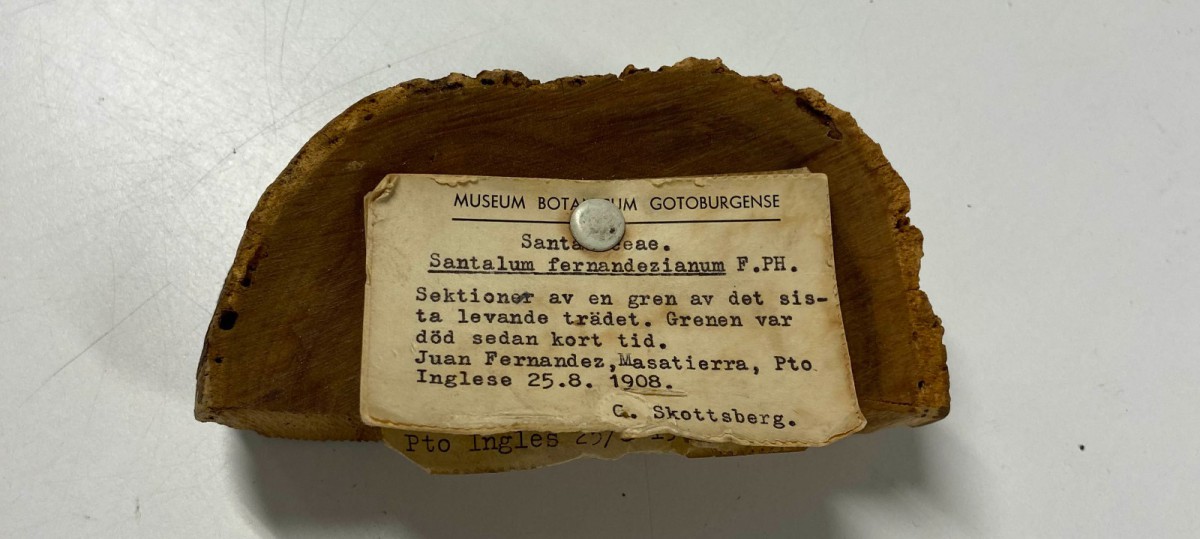 MUSEUM GOTOBURGENSE
Santalum fernandezianum F.PH.
Sektioner av en gren av det sis-
ta levande trädet. Grenen var
död sedan kort tid.
Juan Fernandez, Masatierra, Pto
Inglese 25.8. 1908.
C. Skottsberg.
Pto Ingles